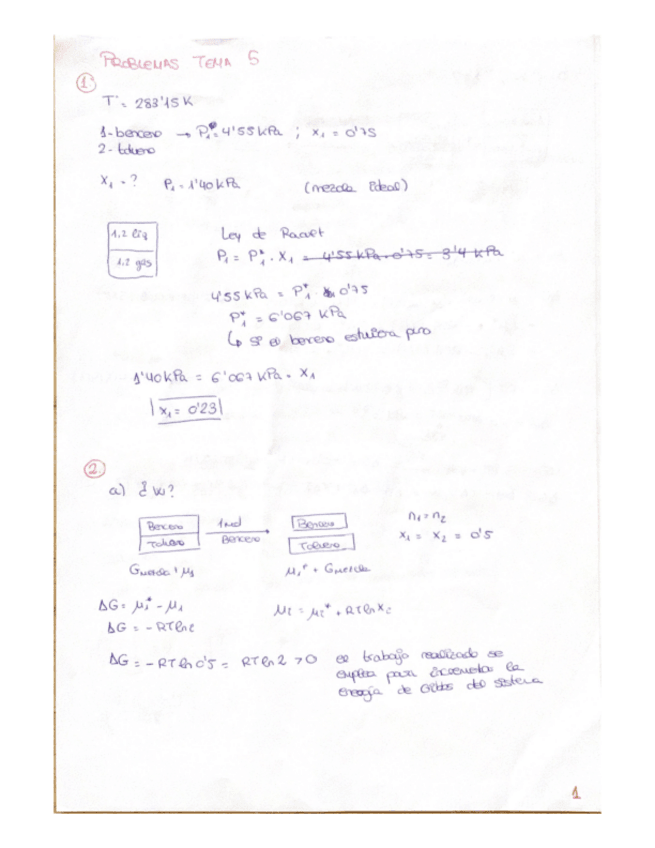 PROBLEMAS TEMA 5
1.
T = 283'15 K
1-benceno → P₁* 4'55 kPa ; x₁ = 0'75
2-tolueno
x₁ = ? P₁ = 1'40 kPa (mezcla ideal)
1,2 liq
1,2 gas
Ley de Raoult
P₁ = P₁* · x₁ = 4'55 kPa · 0'75 = 3'4 kPa
4'55 kPa = P₁* · 0'75
P₁* = 6'067 kPa
↳ si el benceno estuviera puro
1'40 kPa = 6'067 kPa · x₁
x₁ = 0'23
2.
a) ¿W?
Benceno
Tolueno
1mol
Benceno
Benceno
Tolueno
n₁ = n₂
x₁ = x₂ = 0'5
Gmezcla + μ₁
μ₁* + Gmezcla
ΔG = μ₁* - μ₁
μi = μi* + RT ln xi
ΔG = - RT ln
ΔG = - RT ln 0'5 = RT ln 2 > 0 el trabajo realizado se
emplea para incrementar la
energía de Gibbs del sistema
1